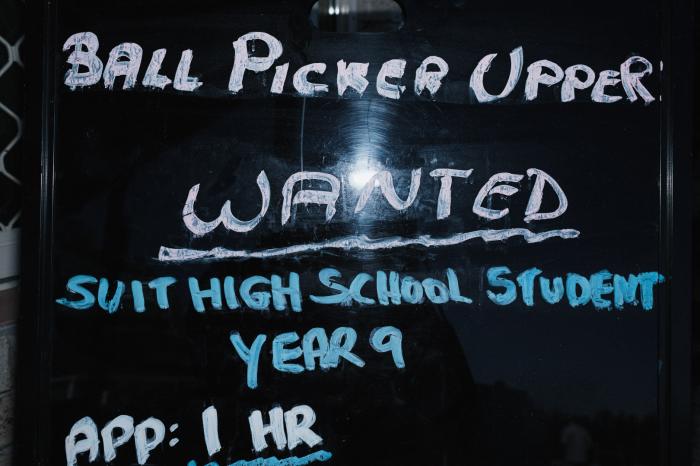 BALL PICKER UPPER
WANTED
SUIT HIGH SCHOOL STUDENT
YEAR 9
APP: 1 HR